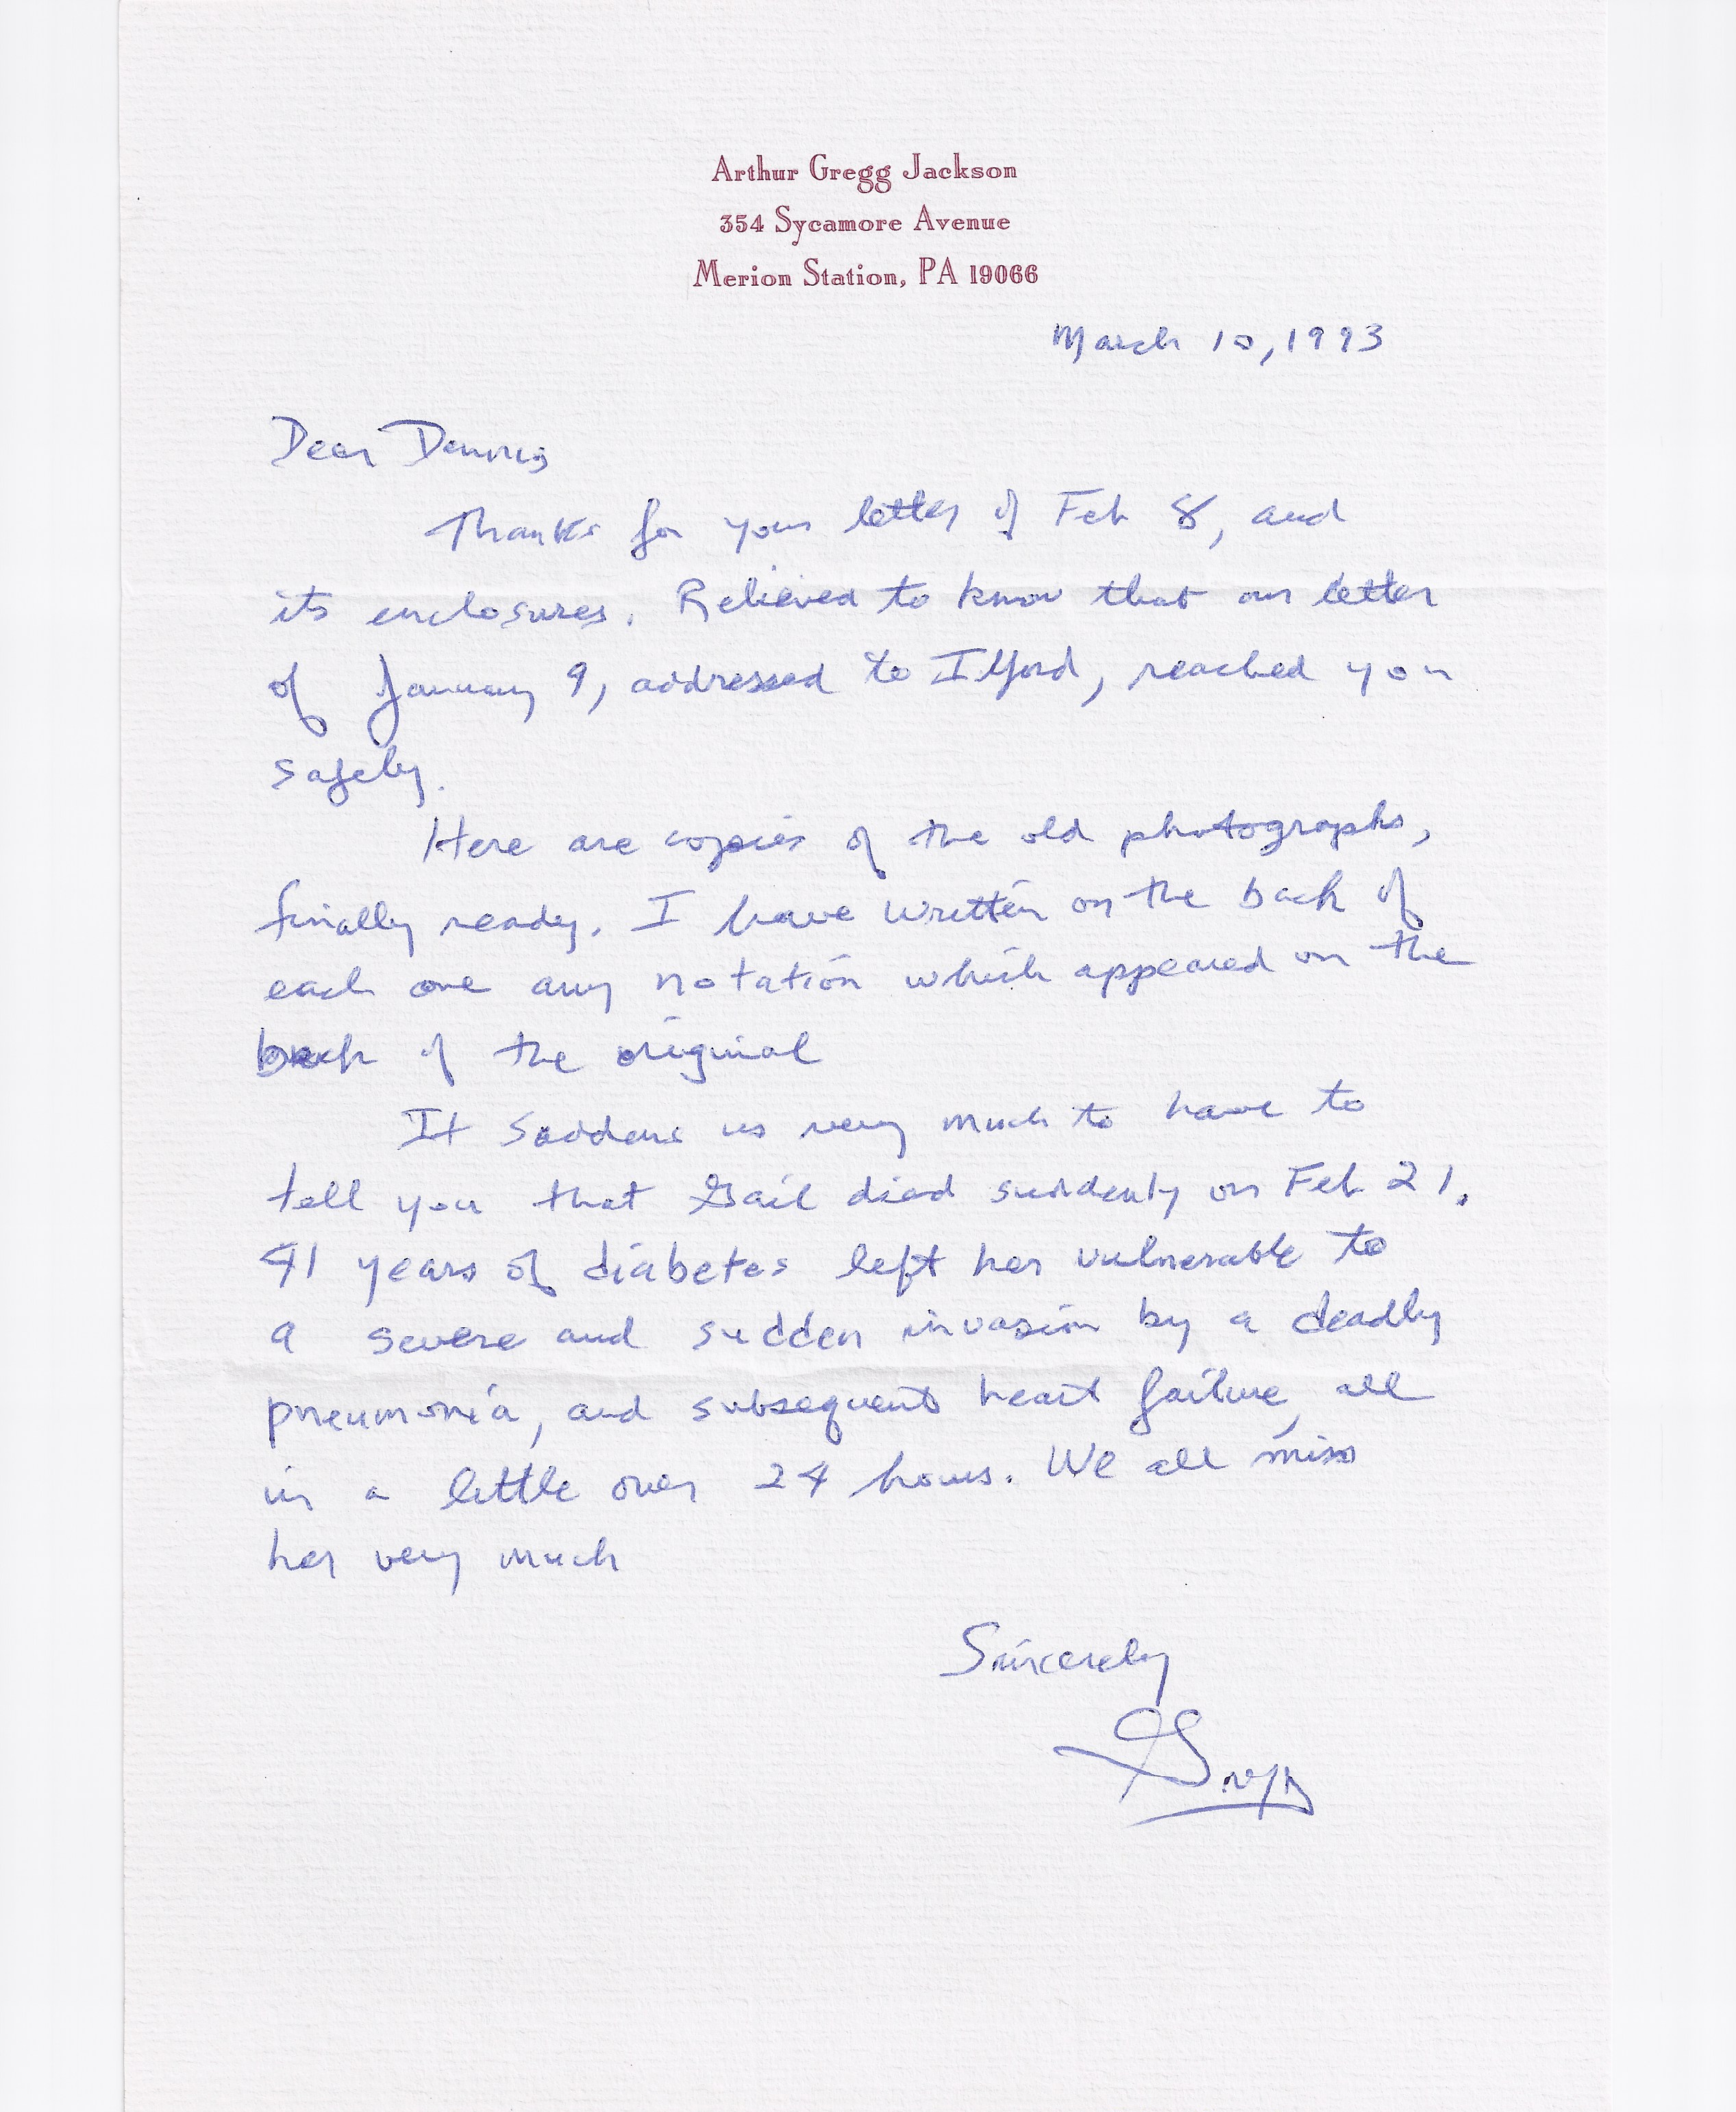 Arthur Gregg Jackson
354 Sycamore Avenue
Merion Station, PA 19066
March 10, 1993
Dear Dennis
Thanks for your letter of Feb 8, and
its enclosures. Relieved to know that our letter
of January 9, addressed to Ilford, reached you
safely.
Here are copies of the old photographs,
finally ready. I have written on the back of
each one any notation which appeared on the
back of the original
It saddens us very much to have to
tell you that Gail died suddenly on Feb 21.
41 years of diabetes left her vulnerable to
a severe and sudden invasion by a deadly
pneumonia, and subsequent heart failure, all
in a little over 24 hours. We all miss
her very much
Sincerely